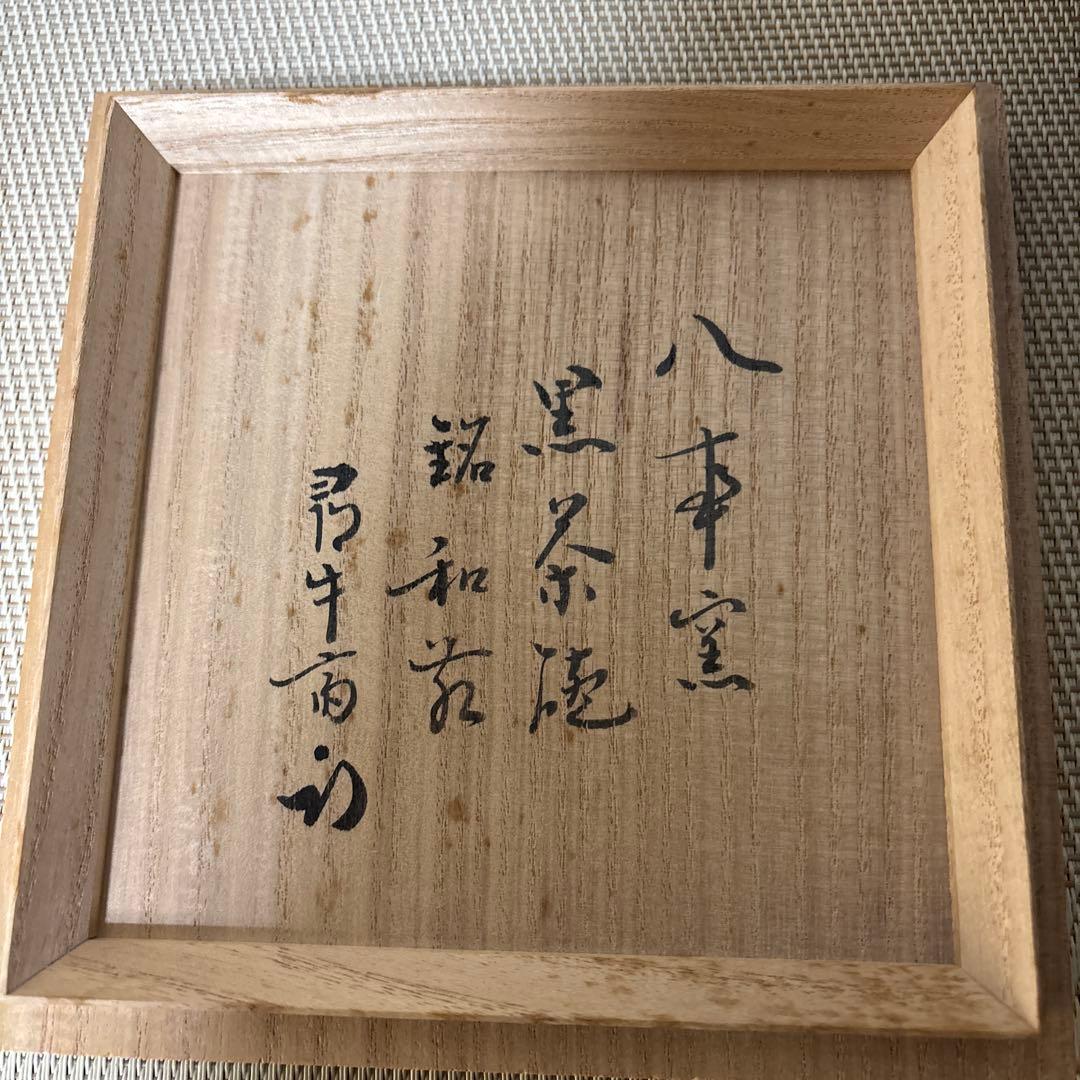 八事窯
黒茶碗
銘和
尋牛斎